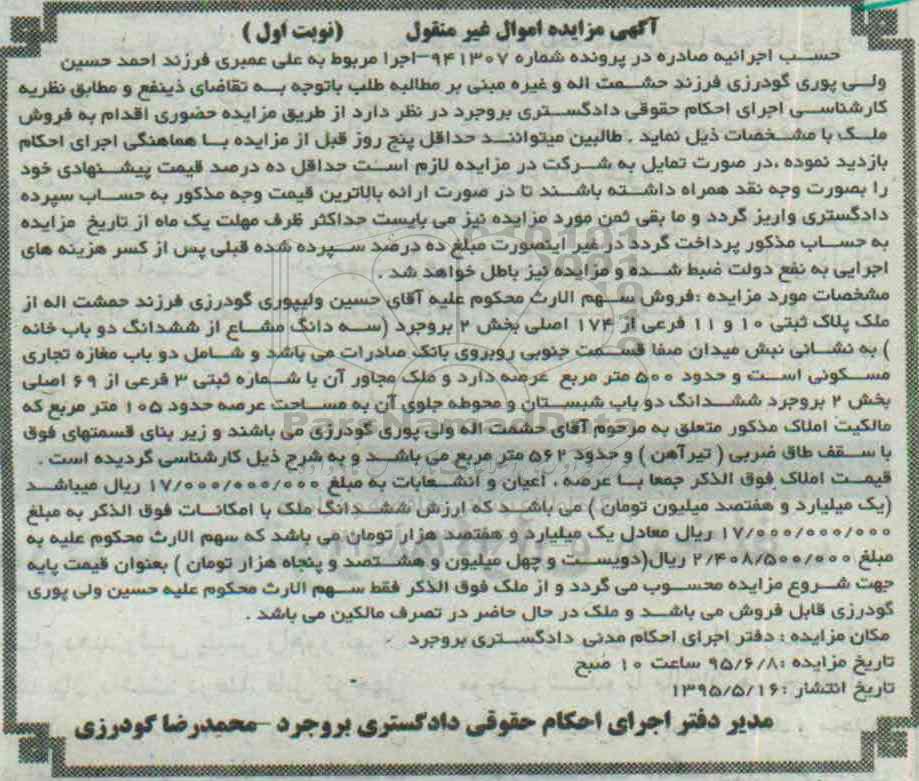 آگهی مزایده اموال غیر منقول (نوبت اول)
حسب اجرائیه صادره در پرونده شماره ۹۴۱۳۰۷-اجرا مربوط به علی عمیری فرزند احمد حسین
ولی پوری گودرزی فرزند حشمت اله و غیره مبنی بر مطالبه طلب باتوجه به تقاضای ذینفع و مطابق نظریه
کارشناسی اجرای احکام حقوقی دادگستری بروجرد در نظر دارد از طریق مزایده حضوری اقدام به فروش
ملک با مشخصات ذیل نماید . طالبین میتوانند حداقل پنج روز قبل از مزایده با هماهنگی اجرای احکام
بازدید نموده ،در صورت تمایل به شرکت در مزایده لازم است حداقل ده درصد قیمت پیشنهادی خود
را بصورت وجه نقد همراه داشته باشند تا در صورت ارائه بالاترین قیمت وجه مذکور به حساب سپرده
دادگستری واریز گردد و ما بقی ثمن مورد مزایده نیز می بایست حداکثر ظرف مهلت یک ماه از تاریخ مزایده
به حساب مذکور پرداخت گردد در غیر اینصورت مبلغ ده درصد سپرده شده قبلی پس از کسر هزینه های
اجرایی به نفع دولت ضبط شده و مزایده نیز باطل خواهد شد .
مشخصات مورد مزایده :فروش سهم الارث محکوم علیه آقای حسین ولیپوری گودرزی فرزند حمشت اله از
ملک پلاک ثبتی ۱۰ و ۱۱ فرعی از ۱۷۴ اصلی بخش ۲ بروجرد (سه دانگ مشاع از ششدانگ دو باب خانه
) به نشانی نبش میدان صفا قسمت جنوبی روبروی بانک صادرات می باشد و شامل دو باب مغازه تجاری
مسکونی است و حدود ۵۰۰ متر مربع عرصه دارد و ملک مجاور آن با شماره ثبتی ۳ فرعی از ۶۹ اصلی
بخش ۲ بروجرد ششدانگ دو باب شبستان و محوطه جلوی آن به مساحت عرصه حدود ۱۰۵ متر مربع که
مالکیت املاک مذکور متعلق به مرحوم آقای حشمت اله ولی پوری گودرزی می باشند و زیر بنای قسمتهای فوق
با سقف طاق ضربی ( تیرآهن ) و حدود ۵۶۲ متر مربع می باشد و به شرح ذیل کارشناسی گردیده است .
قیمت املاک فوق الذکر جمعا با عرصه ، اعیان و انشعابات به مبلغ ۱۷/۰۰۰/۰۰۰/۰۰۰ ریال میباشد
(یک میلیارد و هفتصد میلیون تومان ) می باشد که ارزش ششدانگ ملک با امکانات فوق الذکر به مبلغ
۱۷/۰۰۰/۰۰۰/۰۰۰ ریال معادل یک میلیارد و هفتصد هزار تومان می باشد که سهم الارث محکوم علیه به
مبلغ ۲/۴۰۸/۵۰۰/۰۰۰ ریال(دویست و چهل میلیون و هشتصد و پنجاه هزار تومان ) بعنوان قیمت پایه
جهت شروع مزایده محسوب می گردد و از ملک فوق الذکر فقط سهم الارث محکوم علیه حسین ولی پوری
گودرزی قابل فروش می باشد و ملک در حال حاضر در تصرف مالکین می باشد .
مکان مزایده : دفتر اجرای احکام مدنی دادگستری بروجرد
تاریخ مزایده :۹۵/۶/۸ ساعت ۱۰ صبح
تاریخ انتشار :۱۳۹۵/۵/۱۶
مدیر دفتر اجرای احکام حقوقی دادگستری بروجرد -محمدرضا گودرزی